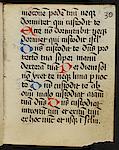 motionē pedē tuū neq
dormitet qui custodit te
Ecce non dormitabit neq
dormiet qui custodit isrl
Dn̄s custodit te dn̄s pro
tectio tua super manū
dexterā tuā Per diem sol
nō uret te neq luna p noc
tē Dn̄s custodit te ab
omni malo custodiat aīam
tuā dn̄s Dn̄s custodiat
introitū tuū et exitū tuū
ex hoc nūc et usq in